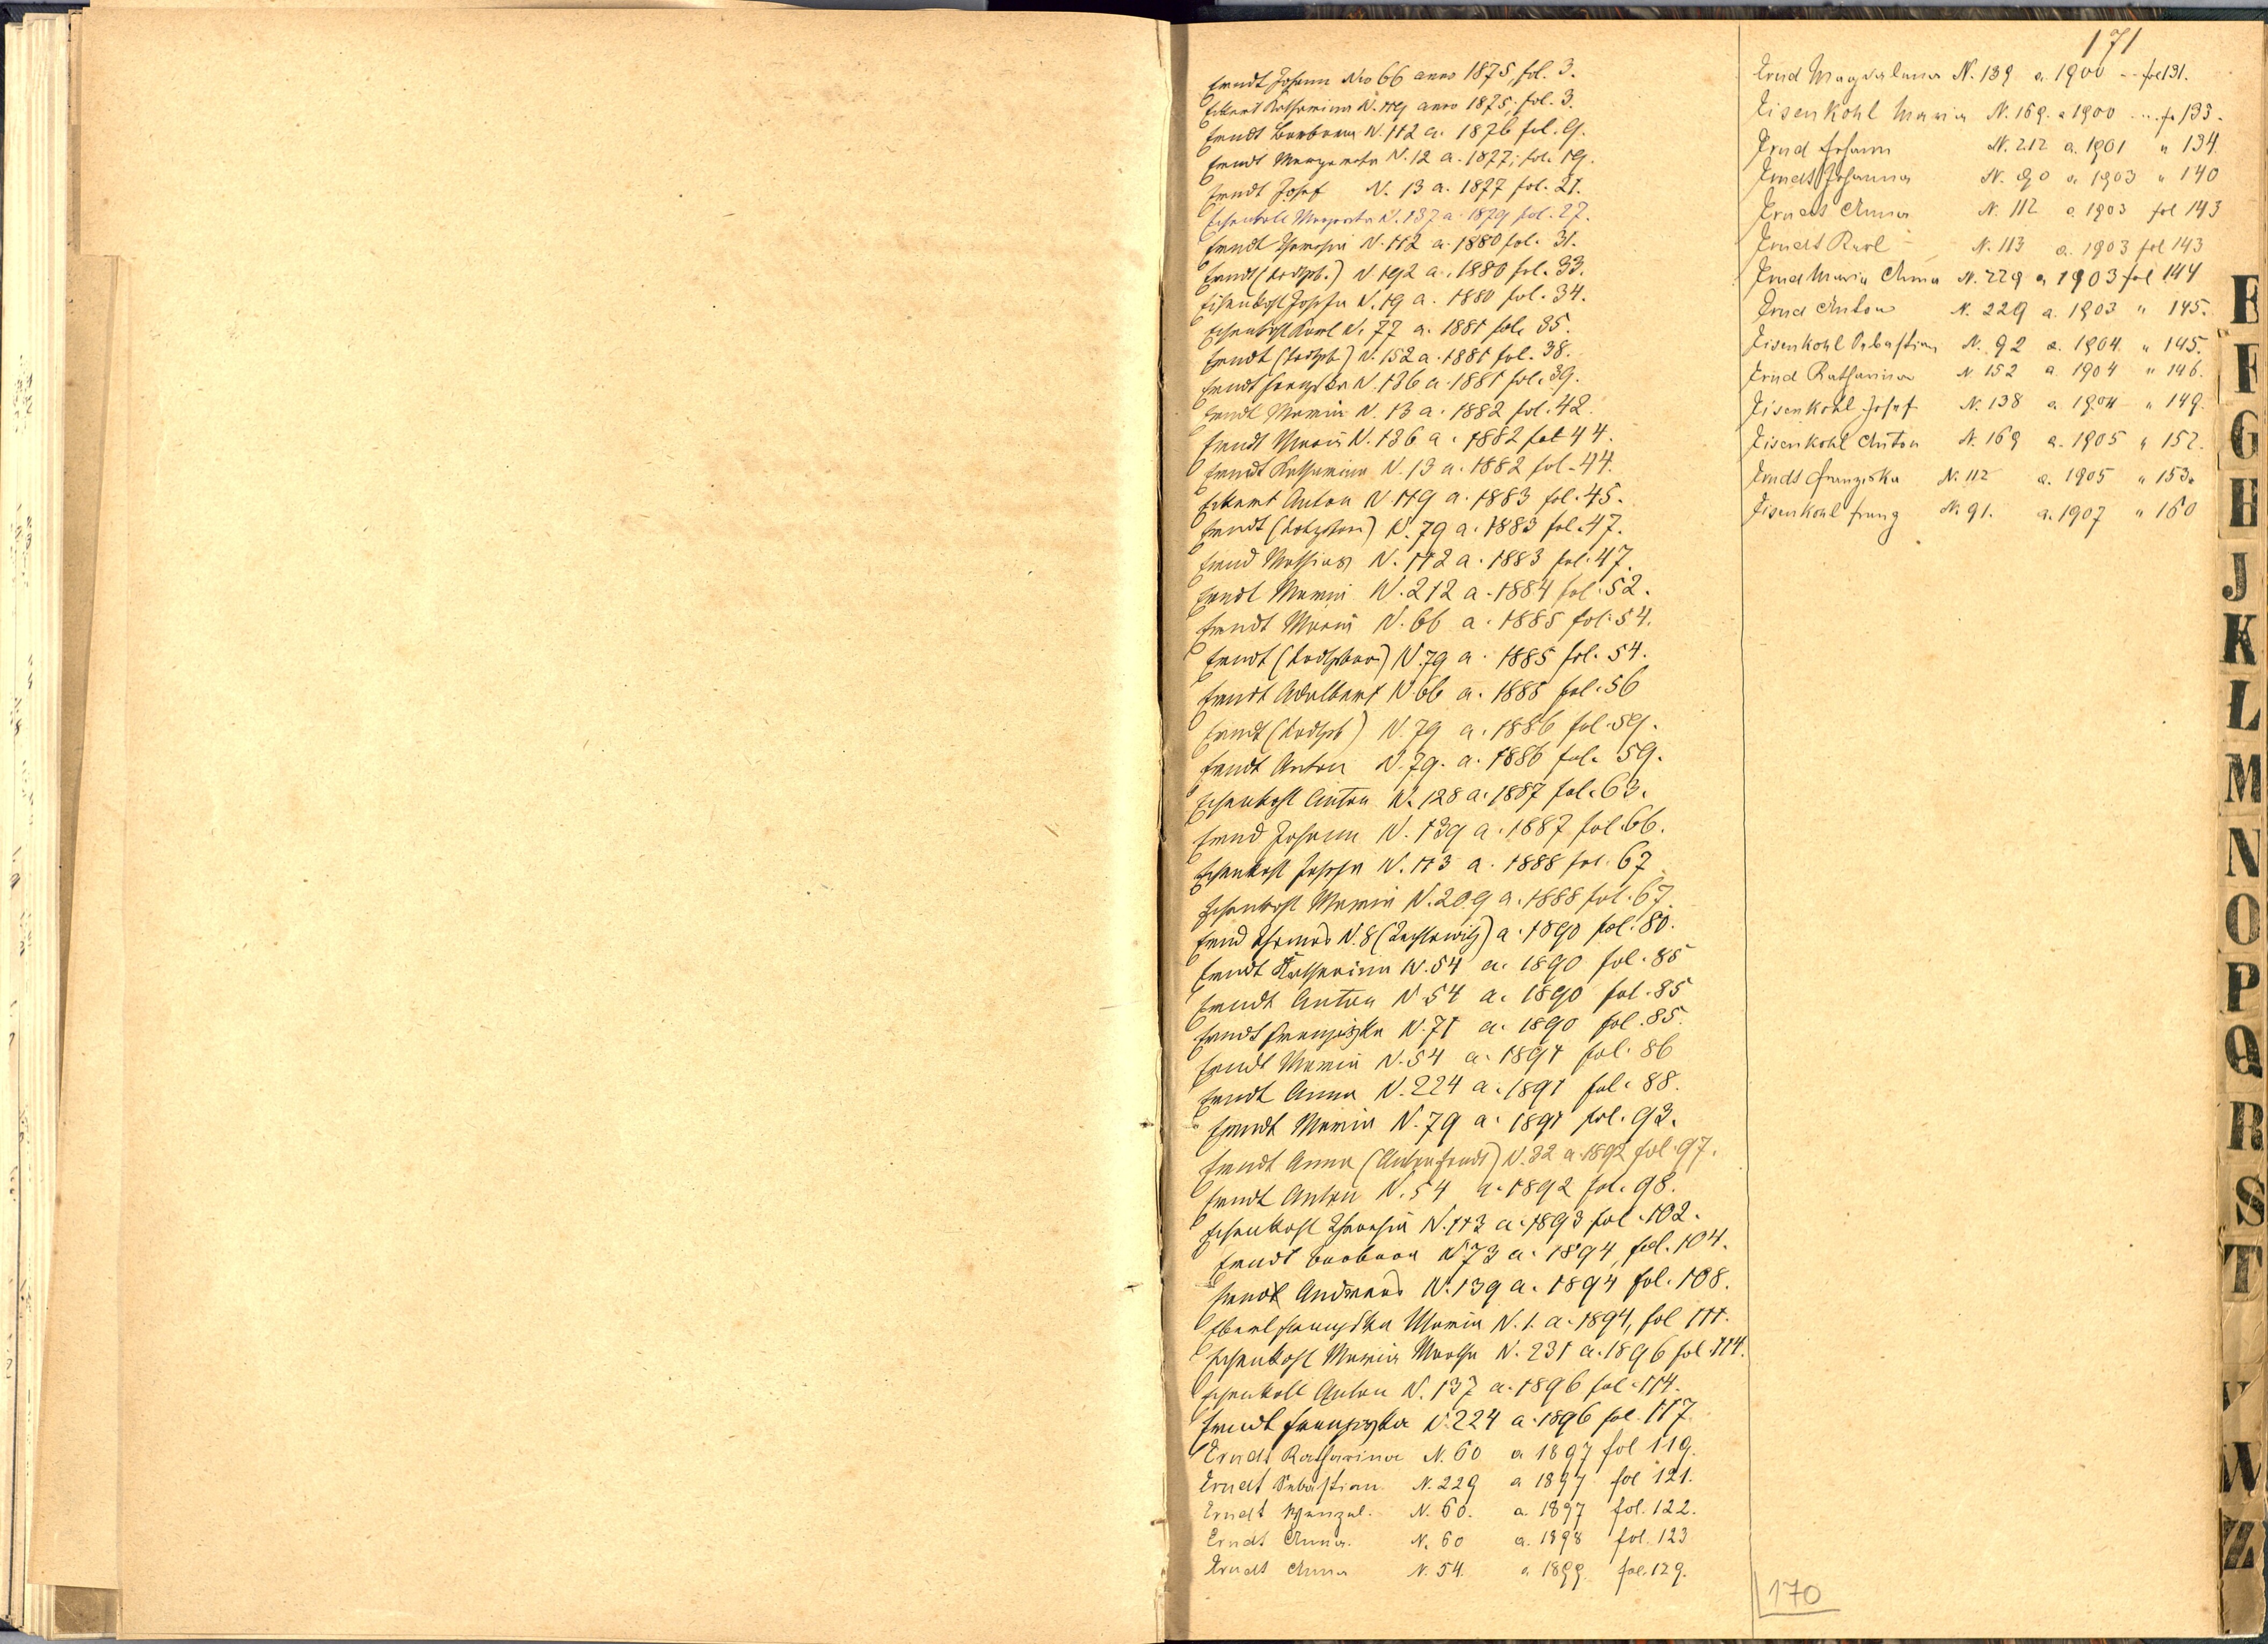 171
Erndt Johann Nro 66 anno 1875, fol. 3.
Eckert Katharina N. 119 anno 1875, fol. 3.
Erndt Barbara N. 112 a. 1876 fol. 9.
Erndt Margareta N. 12 a. 1877; fol. 19.
Erndt Josef N. 13 a. 1877 fol. 21.
Eisenkohl Margareta N. 137 a. 1879 fol. 27.
Erndt Theresia N. 112 a. 1880 fol. 31.
Erndt (todtgeb.) N. 192 a. 1880 fol. 33.
Eisenkohl Josefa N. 19 a. 1880 fol. 34.
Eisenkohl Karl N. 77 a. 1881 fol. 35.
Erndt (todtgeb.) N. 152 a. 1881 fol. 38.
Erndt Franziska N. 136 a. 1881 fol. 39.
Erndt Maria N. 13 a. 1882 fol. 42.
Erndt Maria N. 136 a. 1882 fol 44.
Erndt Katharina N. 13 a. 1882 fol. 44.
Eckert Anton N 119 a. 1883 fol. 45.
Erndt (todtgebor.) N. 79 a. 1883 fol. 47.
Ernd Mathias N. 112 a. 1883 fol. 47.
Erndt Maria N. 212 a. 1884 fol. 52.
Erndt Maria N. 66 a. 1885 fol. 54.
Erndt (todtgebor) N. 79 a. 1885 fol. 54.
Erndt Adalbert N 66 a. 1885 fol. 56
Erndt (todtgeb) N. 79 a. 1886 fol. 59.
Erndt Anton N. 79. a. 1886 fol. 59.
Eisenkohl Anton N. 128 a. 1887 fol. 63.
Ernd Johann N. 139 a. 1887 fol. 66.
Eisenkohl Josefa N. 113 a. 1888 fol. 67
Eisenkohl Maria N. 209 a. 1888 fol. 67.
Ernd Thomas N. 8 a. 1890 fol. 80.
Erndt Katharina N. 54 a. 1890 fol. 85
Erndt Anton N 54 a. 1890 fol. 85
Erndt Franziska N. 71 a. 1890 fol. 85.
Erndt Maria N. 54 a. 1891 fol. 86
Erndt Anna N. 224 a. 1891 fol. 88.
Erndt Maria N. 79 a. 1891 fol. 93.
Erndt Anna N. 32 a. 1892 fol. 97.
Erndt Anton N. 54 a. 1892 fol. 98.
Eisenkohl Theresia N. 113 a. 1893 fol. 102.
Erndt Barbara N 73 a. 1894, fol. 104.
Erndt Andreas N. 139 a. 1894 fol. 108.
Eberl Franziska Maria N. 1. a. 1894, fol 111.
Eisenkohl Maria Martha N. 231 a. 1896 fol. 114.
Eisenkohl Anton N. 137 a. 1896 fol. 114.
Erndt Franziska N. 224 a. 1896 fol. 117.
Erndt Katharina N. 60 a 1897 fol 119.
Erndt Sebastian N. 229 a 1897 fol 121.
Erndt Wenzel. N. 60. a. 1897 fol. 122.
Erndt Anna. N. 60 a. 1898 fol. 123
Erndt Anna N. 54. a. 1899. fol. 129.
Ernd Magdalena N. 139 a. 1900 -- fol 131.
Eisenkohl Maria N. 169. a 1900 ... fo 133.
Ernd Johann N. 212 a. 1901 " 134.
Erndt Johanna N. 90 a. 1903 " 140
Erndt Anna N. 112 a. 1903 fol 143
Erndt Karl N. 113 a. 1903 fol 143
Ernd Maria Anna N. 229 a. 1903 fol 144
Ernd Anton N. 229 a. 1903 " 145.
Eisenkohl Sebastian N. 92 a. 1904. " 145.
Ernd Katharina N. 152 a 1904 " 146.
Eisenkohl Josef N. 138 a. 1904 " 149.
Eisenkohl Anton N. 169 a. 1905 " 152.
Erndt Franziska N. 112 a. 1905 " 153.
Eisenkohl Franz N. 91. a. 1907 " 160
170
E
F
G
H
J
K
L
M
N
O
P
Q
R
S
T
V
W
Z